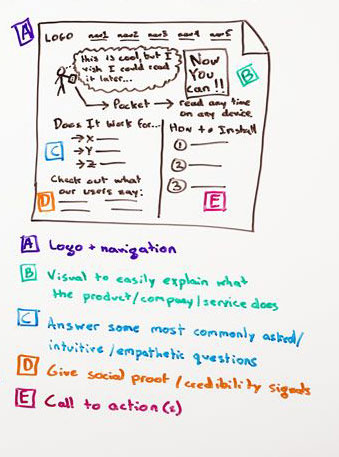 A
LOGO nav1 nav2 nav3 nav4 nav5
this is cool, but I
wish I could read
it later...
Now
You
can!!
B
→ Pocket → read any time
on any device
Does It Work for...
→ X
→ Y
→ Z
C
How to Install
1
2
3
Check out what
our users say:
D
E
A Logo + navigation
B Visual to easily explain what
the product/company/service does
C Answer some most commonly asked/
intuitive/empathetic questions
D Give social proof/credibility signals
E Call to action(s)